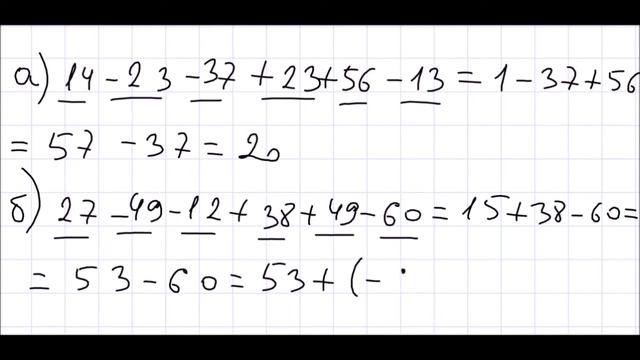 а) 14 - 23 - 37 + 23 + 56 - 13 = 1 - 37 + 56
= 57 - 37 = 20
б) 27 - 49 - 12 + 38 + 49 - 60 = 15 + 38 - 60 =
= 53 - 60 = 53 + (-